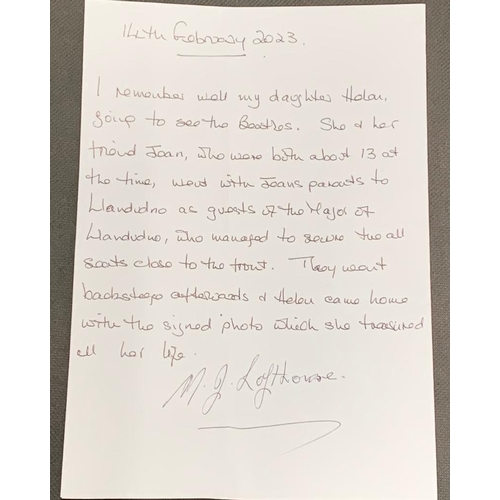 14th February 2023.
I remember well my daughter Helen,
going to see the Beatles. She & her
friend Joan, who were both about 13 at
the time, went with Joans parents to
Llandudno as guests of the Major of
Llandudno, who managed to secure the all
seats close to the front. They went
backstage afterwards & Helen came home
with the signed photo which she treasured
all her life.
M. J. Lofthouse.